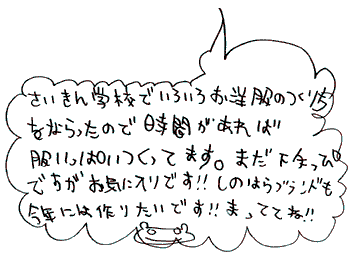 さいきん学校でいろいろお洋服のつくり方
をならったので時間があれば
服いっぱいつくってます。まだ下手っぴ
ですがお気に入りです!!しのはらブランドも
今年には作りたいです!!まっててね!!